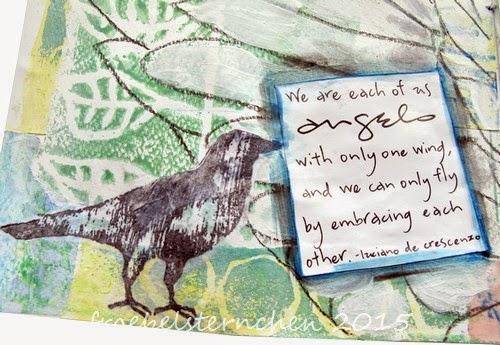 We are each of us
angels
with only one wing,
and we can only fly
by embracing each
other. -luciano de crescenzo
froebelsternchen 2015